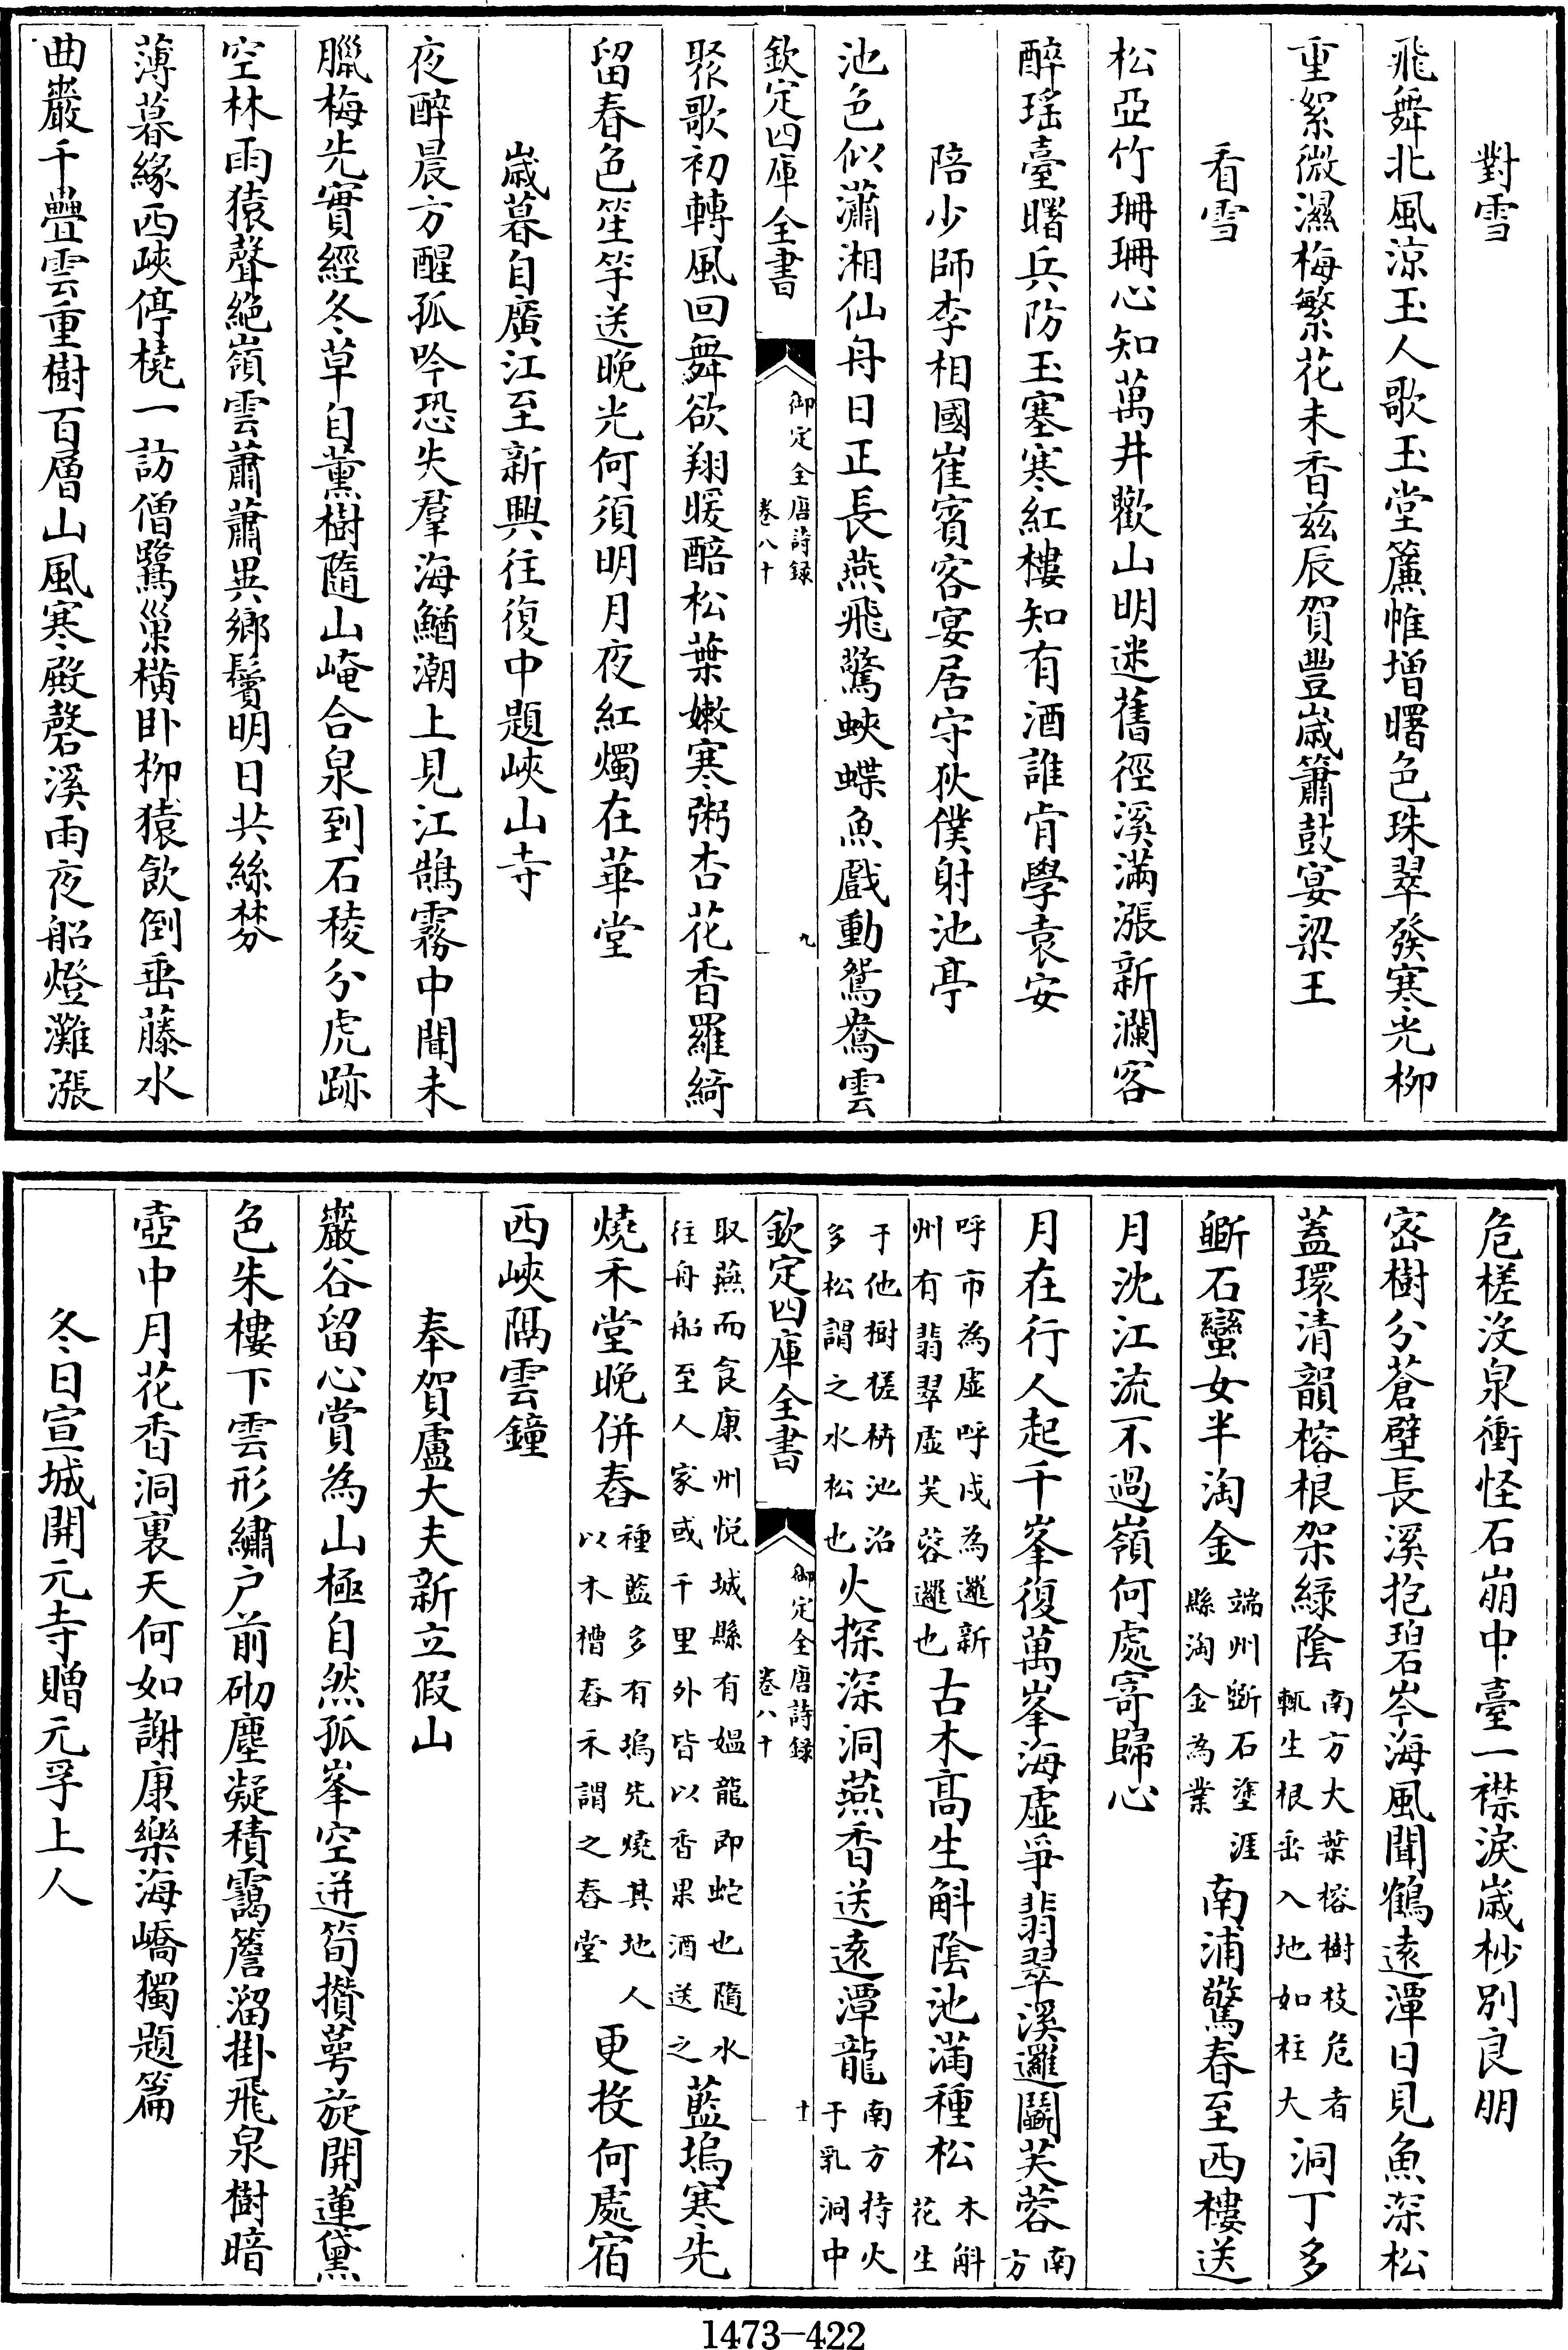 對雪
飛舞北風涼玉人歌玉堂簾帷增曙色珠翠發寒光柳
重絮微濕梅繁花未香兹辰賀豐歳簫鼓宴梁王
看雪
松亞竹珊珊心知萬井歡山明迷舊徑溪滿漲新瀾客
醉瑤臺曙兵防玉塞寒紅樓知有酒誰肯學袁安
陪少師李相國崔賓客宴居守狄僕射池亭
池色似瀟湘仙舟日正長燕飛驚蛺蝶魚戲動鴛鴦雲
欽定四庫全書
御定全唐詩録
卷八十
九
聚歌初轉風回舞欲翔暖醅松葉嫩寒粥杏花香羅綺
留春色笙竽送晩光何須明月夜紅燭在華堂
歳暮自廣江至新興往復中題峽山寺
夜醉晨方醒孤吟恐失羣海鰌潮上見江鵠霧中聞未
臘梅先實經冬草自薰樹隨山崦合泉到石稜分虎跡
空林雨猿聲絶嶺雲蕭蕭異鄉鬢明日共絲棼
薄暮緣西峽停橈一訪僧鷺巢横卧柳猿飲倒垂藤水
曲巖千疊雲重樹百層山風寒殿磬溪雨夜船燈灘漲
危槎没泉衝怪石崩中臺一襟淚歳杪别良朋
密樹分蒼壁長溪抱碧岑海風聞鶴遠潭日見魚深松
蓋環清韻榕根架緑陰
南方大葉榕樹枝危者
輒生根垂入地如柱大
洞丁多
斸石蠻女半淘金
端州斵石塗涯
縣淘金為業
南浦驚春至西樓送
月沈江流不過嶺何處寄歸心
月在行人起千峯復萬峯海虛爭翡翠溪邏鬭芙蓉
南
方
呼市為虛呼戍為邏新
州有翡翠虛芙蓉邏也
古木髙生斛陰池滿種松
木斛
花生
于他樹槎枿池沼
多松謂之水松也
火探深洞燕香送遠潭龍
南方持火
于乳洞中
欽定四庫全書
御定全唐詩録
卷八十
十
取燕而食康州悦城縣有媪龍即蛇也隨水
往舟船至人家或千里外皆以香果酒送之
藍塢寒先
燒禾堂晩併舂
種藍多有塢先燒其地人
以木槽舂禾謂之舂堂
更投何處宿
西峽隔雲鐘
奉賀盧大夫新立假山
巖谷留心賞為山極自然孤峯空迸筍攢萼旋開蓮黛
色朱樓下雲形繡户前砌塵凝積靄簷溜掛飛泉樹暗
壺中月花香洞裏天何如謝康樂海嶠獨題篇
冬日宣城開元寺贈元孚上人
1473-422